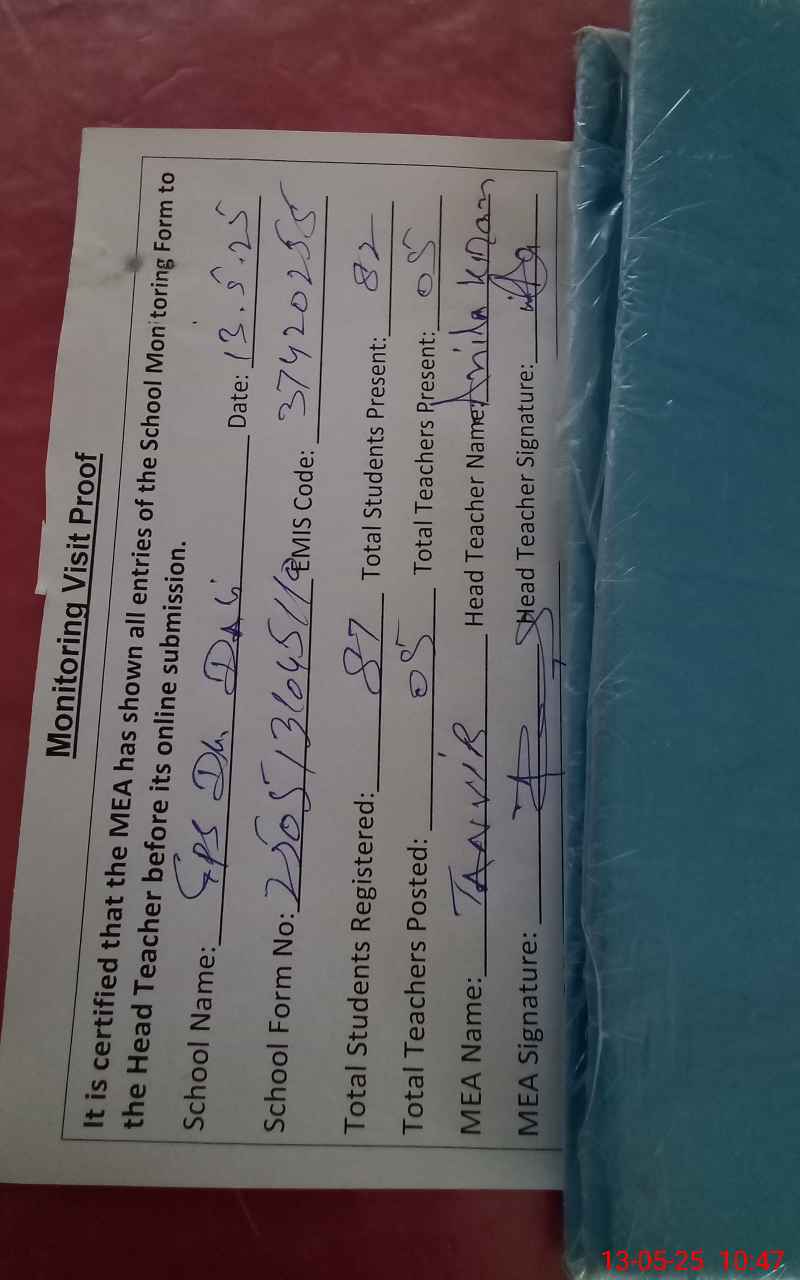 Monitoring Visit Proof
It is certified that the MEA has shown all entries of the School Monitoring Form to
the Head Teacher before its online submission.
School Name: GPS Dh Date: 13.5.25
School Form No: EMIS Code: 37420255
Total Students Registered: 87 Total Students Present: 82
Total Teachers Posted: 05 Total Teachers Present: 05
MEA Name: TANVIR Head Teacher Name: Anila Kiran
MEA Signature: Head Teacher Signature:
13-05-25 10:47